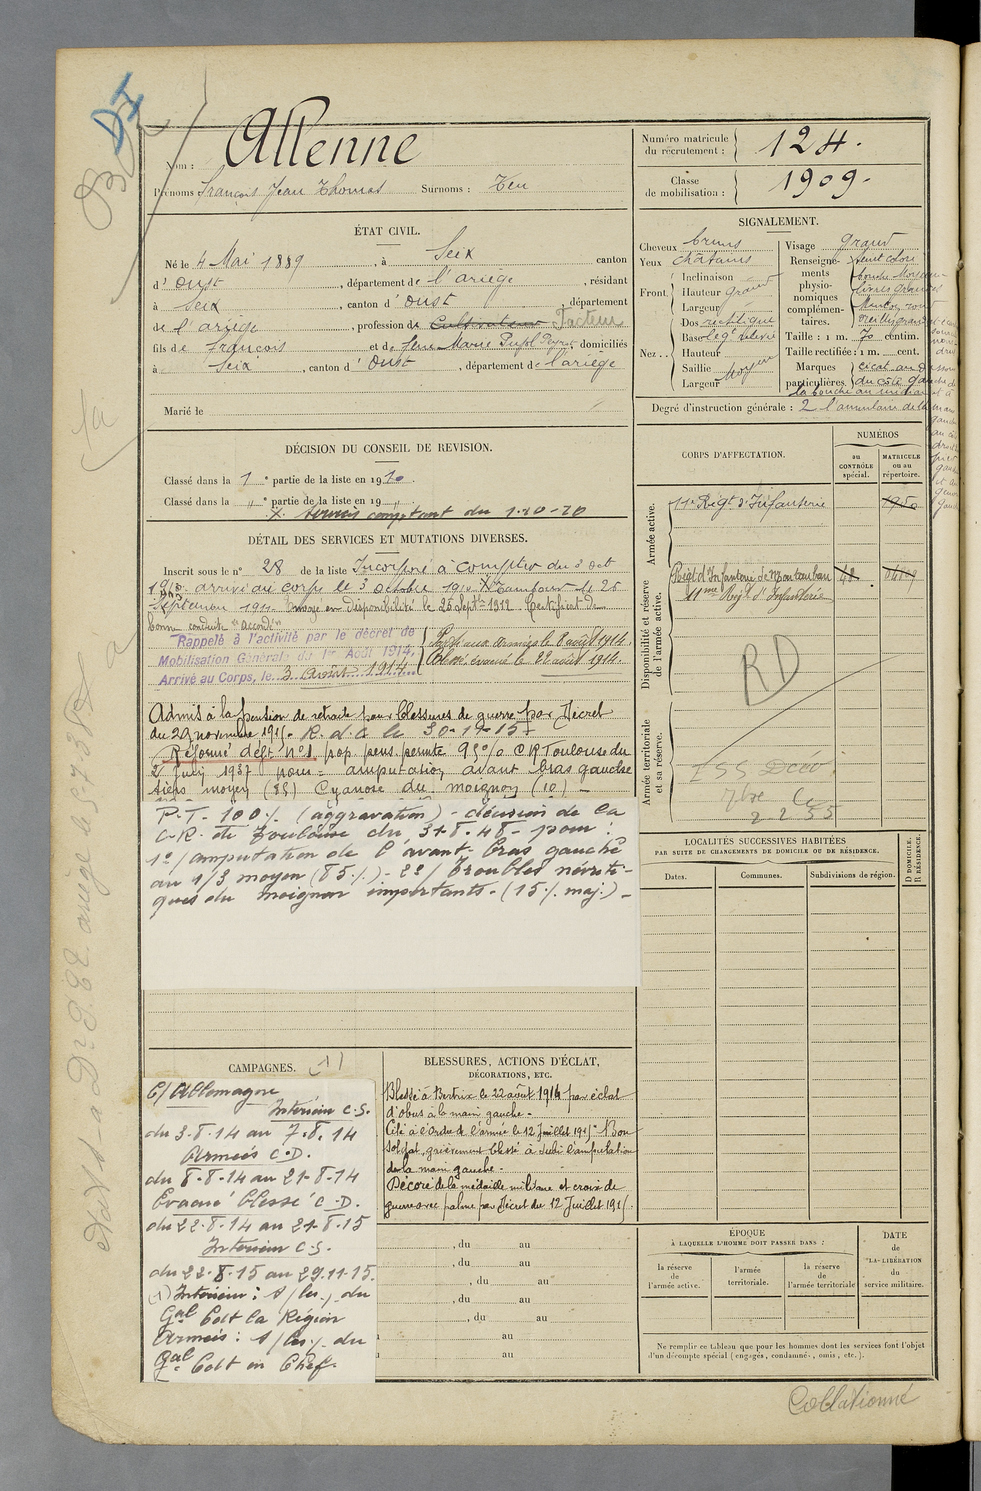 DI
Nom : Allenne
Prénoms : François Jean Thomas Surnoms :
Numéro matricule du recrutement : 124.
Classe de mobilisation : 1909.
ÉTAT CIVIL.
Né le 4 Mai 1889, à Seix canton
d' Oust, département de l'ariège, résidant
à Seix, canton d' Oust, département
de l'ariège, profession de Cultivateur Facteur
fils de françois et de Marie Pujol, domiciliés
à Seix, canton d' Oust, département de l'ariège
Marié le
DÉCISION DU CONSEIL DE REVISION.
Classé dans la 1e partie de la liste en 1910.
Classé dans la " e partie de la liste en 19 "
X soumis comptant du 1-10-10
DÉTAIL DES SERVICES ET MUTATIONS DIVERSES.
Inscrit sous le n° 28 de la liste Incorporé à compter du 3 oct
1910. arrivé au corps le 3 octobre 1910. Tambour le 25
Septembre 1911. Envoyé en disponibilité le 25 Septre 1912. Certificat de
bonne conduite "accordé"
Rappelé à l'activité par le décret de
Mobilisation Générale du 1er Août 1914.
Arrivé au Corps, le 3 août 1914
Passé aux armées le 8 août 1914.
Blessé évacué le 22 août 1914.
Admis à la pension de retraite pour blessures de guerre par Décret
du 29 novembre 1915. R. d. C. le 30-11-15
Réformé déft n°1 prop. pens. permte 95% CR Toulouse du
2 Juin 1937 pour = amputation avant bras gauche
tiers moyen (85) Cyanose du moignon (10) –
P.T. 100% (aggravation) – décision de la
C.R. de Toulouse du 31-8-48 – pour :
1°/ amputation de l'avant-bras gauche
au 1/3 moyen (85%) – 2°/ troubles névriti-
ques du moignon importants – (15% maj.) –
CAMPAGNES. (1)
C/ Allemagne
Intérieur C.S.
du 3.8.14 au 7.8.14
Armées C.D.
du 8-8-14 au 21-8-14
Evacué blessé C.D.
du 22.8.14 au 21.8.15
Intérieur C.S.
du 22.8.15 au 29.11.15.
(1) Intérieur : du
Gal Cdt la Région
Armées : du
Gal Cdt en Chef.
BLESSURES, ACTIONS D'ÉCLAT,
DÉCORATIONS, ETC.
Blessé à Bertrix le 22 août 1914 par éclat
d'obus à la main gauche.
Cité à l'Ordre de l'armée le 12 Juillet 1915 : "Bon
soldat, grièvement blessé a subi l'amputation
de la main gauche.
Décoré de la médaille militaire et croix de
guerre avec palme par Décret du 12 Juillet 1915.
, du au
, du au
, du au
, du au
, du au
au
au
SIGNALEMENT.
Cheveux bruns
Yeux châtains
Front Inclinaison
Hauteur grand
Largeur
Nez Dos rectiligne
Base leg' relevée
Hauteur
Saillie
Largeur Moyen
Visage grand
Renseignements physionomiques complémentaires. teint coloré
bouche Moyenne
lèvres grandes
Menton rond
Taille : 1 m. 70 centim.
Taille rectifiée : 1 m. cent.
Marques particulières
Degré d'instruction générale : 2
CORPS D'AFFECTATION.
NUMÉROS
au CONTRÔLE spécial.
MATRICULE ou au répertoire.
Armée active.
11e Régt d'Infanterie
Disponibilité et réserve de l'armée active.
Régt d'Infanterie de Montauban
11me Regt d'Infanterie
RD
Armée territoriale et sa réserve.
LOCALITÉS SUCCESSIVES HABITÉES
PAR SUITE DE CHANGEMENTS DE DOMICILE OU DE RÉSIDENCE.
Dates.
Communes.
Subdivisions de région.
D DOMICILE.
R RÉSIDENCE.
ÉPOQUE
À LAQUELLE L'HOMME DOIT PASSER DANS :
la réserve de l'armée active.
l'armée territoriale.
la réserve de l'armée territoriale
DATE de la LIBÉRATION du service militaire.
Ne remplir ce tableau que pour les hommes dont les services font l'objet
d'un décompte spécial (engagés, condamnés, omis, etc.).
Collationné